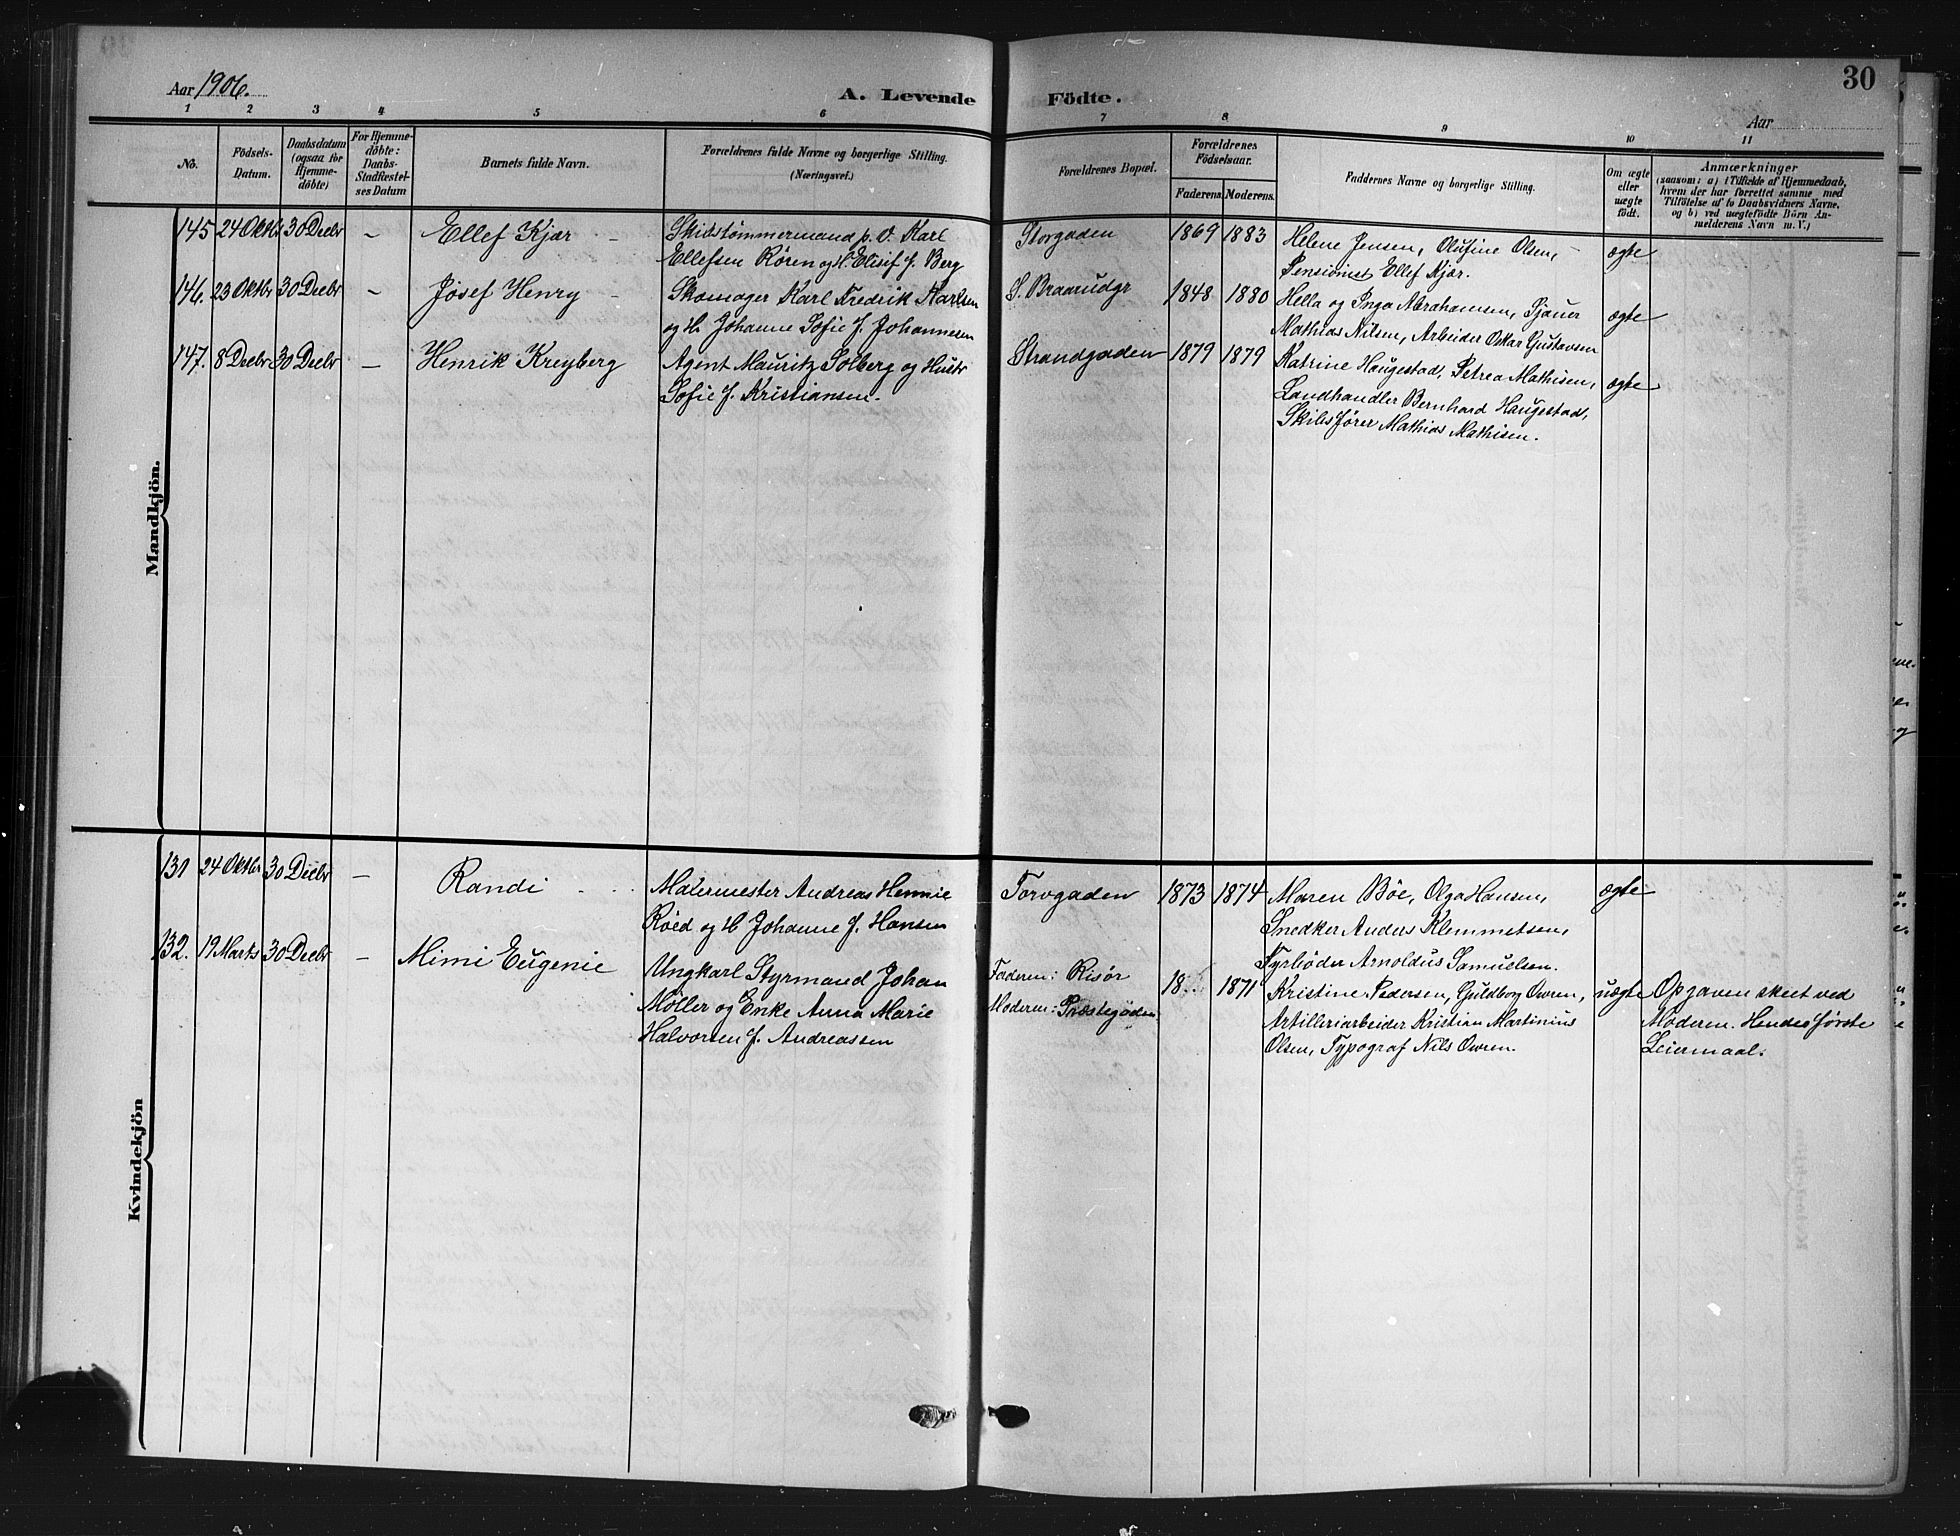 30
Aar 1906.
A. Levende Födte.
Aar
1 2 3 4 5 6 7 8 9 10 11
No.
Födsels-
Datum.
Daabsdatum
(ogsaa for
Hjemme-
döbte)
For Hjemme-
döbte:
Daabs-
Stadfæstel-
ses Datum
Barnets fulde Navn.
Forældrenes fulde Navne og borgerlige Stilling.
(Næringsvei.)
Forældrenes Bopæl.
Forældrenes
Födselsaar.
Faderens. Moderens.
Faddernes Navne og borgerlige Stilling.
Om ægte
eller
uægte
födt.
Anmærkninger
(saasom: a) i Tilfælde af Hjemmedaab,
hvem der har forrettet samme med
Tilföielse af to Daabsvidners Navne,
og b) ved uægtefödte Börn An-
melderens Navn m. V.)
Mandkjön.
145 24 Oktbr 30 Decbr - Ellef Kjær - Skibstømmermand p. v. Karl
Ellefsen Røren og H. Elisif f. Berg
Storgaden 1869 1883 Helene Jensen, Olufine Olsen,
Pensionist Ellef Kjær.
ægte
146. 23 Oktbr 30 Decbr - Josef Henry - Skomager Karl Fredrik Karlsen
og H. Johanne Sofie f. Johannesen
S. Braarudgt 1848 1880 Hella og Inga Abrahamsen, Sjauer
Mathias Nilsen, Arbeider Oskar Gustavsen
ægte
147. 8 Decbr 30 Decbr - Henrik Kreyberg Agent Mauritz Solberg og Hustr
Sofie f. Kristiansen.
Strandgaden 1879 1879 Katrine Haugestad, Petrea Mathisen,
Landhandler Bernhard Haugestad,
Skibsfører Mathias Mathisen.
ægte
Kvindekjön
131 24 Oktbr 30 Decbr - Randi Malermester Andreas Hennie
Røed og H. Johanne f. Hansen
Torvgaden 1873 1874 Maren Böe, Olga Hansen,
Snedker Anders Klemmetsen,
Fyrbøder Arnoldus Samuelsen.
ægte
132. 19 Marts 30 Decbr - Mimi Eugenie Ungkarl Styrmand Johan
Møller og Enke Anna Marie
Halvorsen f. Andreassen
Faderen: Risør
Moderen: Præstegaden
18 1871 Kristine Pedersen, Guldborg Owren,
Artilleriarbeider Kristian Martinius
Olsen, Typograf Nils Owren.
uægte Opgaven skeet ved
Moderen. Hendes første
Leiermaal.